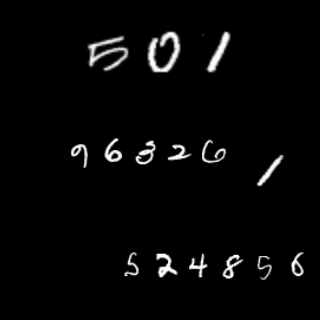 501
963261
524856